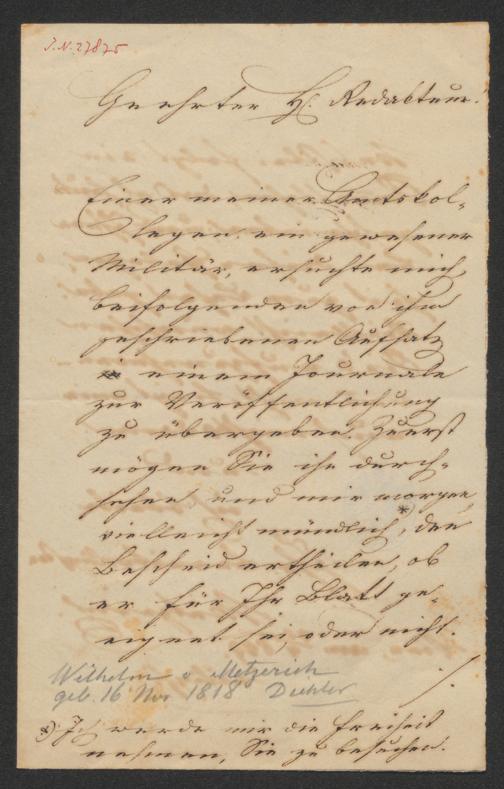 J.N. 27875
Geehrter H. Redakteur.
Einer meiner Amtskol-
legen, ein gewesener
Militär, ersuchte mich,
beifolgenden von ihm
geschriebenen Aufsatz
einem Journale
zur Veröffentlichung
zu übergeben. Zuerst
mögen Sie ihn durch-
sehen und mir morgen,
vielleicht mündlich,*) den
Bescheid ertheilen, ob
er für Ihr Blatt ge-
eignet sei, oder nicht.
Wilhelm v Metzerich
geb. 16 Nov 1818 Dichter
./.
*) Ich werde mir die Freiheit
nehmen, Sie zu besuchen.